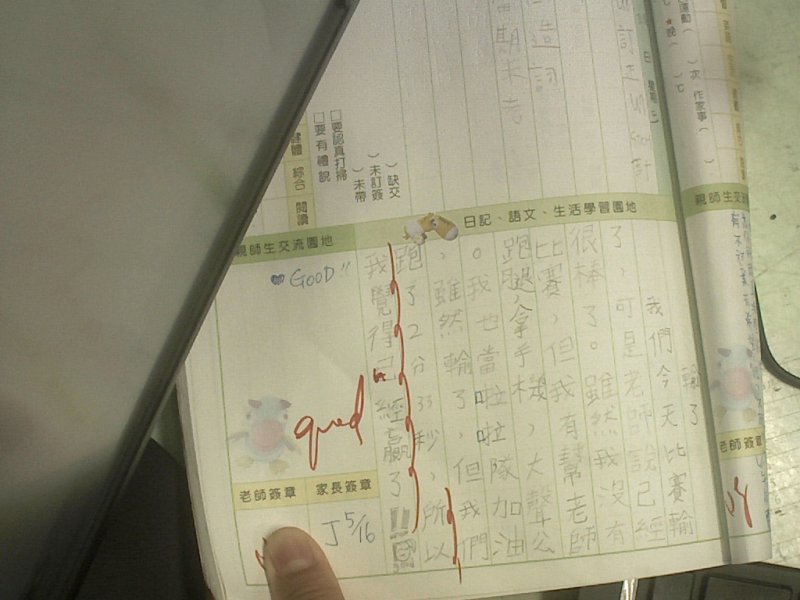 造詞
當期末考
作家事（ ）
）缺交
）未訂簽
）未帶
□要認真打掃
□要有禮貌
綜合
閱讀
日記、語文、生活學習園地
親師生交流園地
輸了
我們今天比賽輸
了，可是老師說已經
很棒了。雖然我沒有
比賽，但我有幫老師
跑腿，拿手機，大聲公
。我也當啦啦隊加油
，雖然輸了，但我們
跑了2分33秒，所以
我覺得已經贏了!!
GOOD!!
good
家長簽章
老師簽章
J 5/16
老師簽章